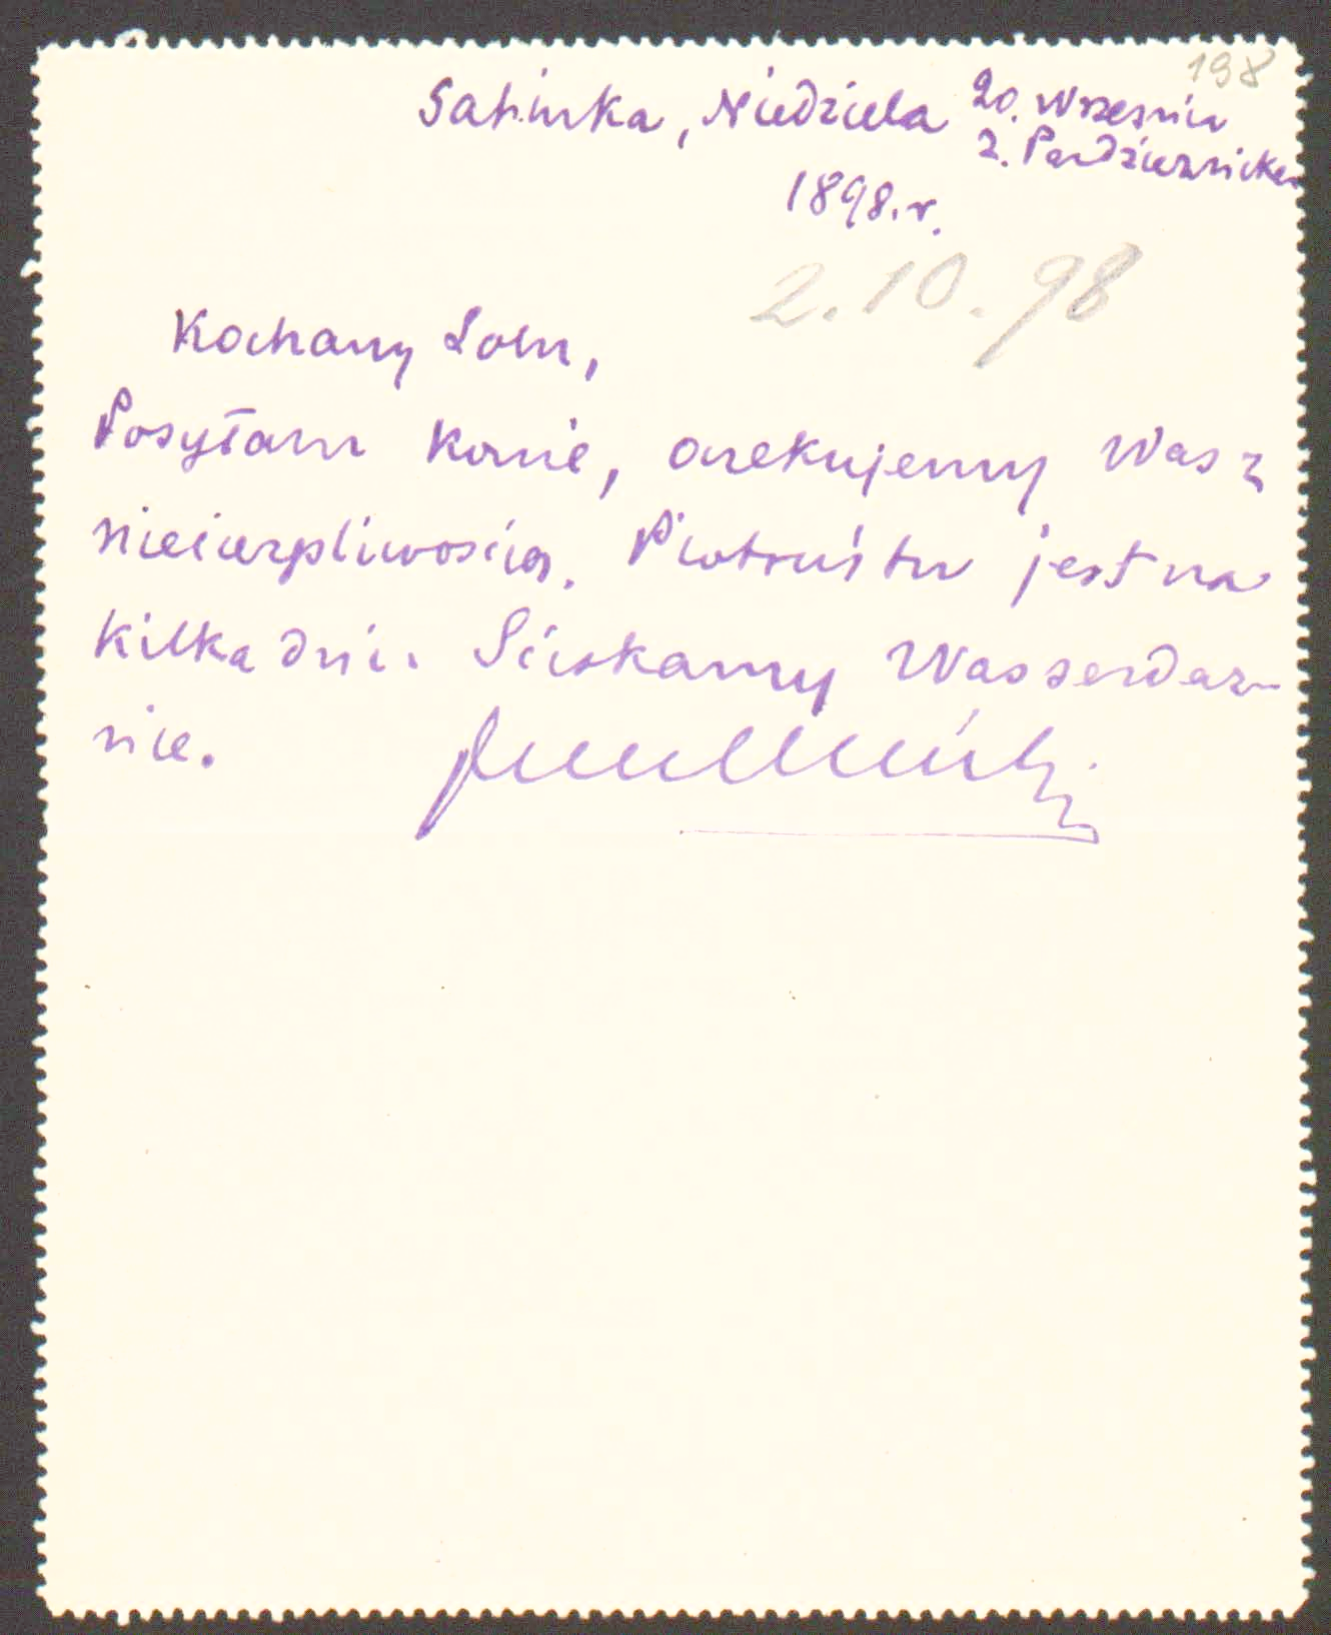 198
Satinka, Niedziela 20. Września
2. Października
1898. r.
2.10.98
Kochany Lolu,
Posyłam konie, oczekujemy Was z
niecierpliwością. Piotruś tu jest na
kilka dni. Ściskamy Was serdecz-
nie.